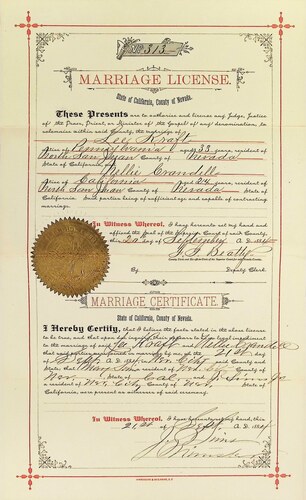 No. 313
MARRIAGE LICENSE.
State of California, County of Nevada.
These Presents are to authorize and license any Judge, Justice
of the Peace, Priest, or Minister of the Gospel of any denomination, to
solemnize within said County, the marriage of
Lee Kraft
Native of Pennsylvania aged 33 years, resident of
North San Juan County of Nevada
State of California, and
Nellie Crandell
Native of California aged 24 years, resident of
North San Juan County of Nevada
State of California. Said parties being of sufficient age and capable of contracting
marriage.
In Witness Whereof, I have hereunto set my hand and
affixed the Seal of the Superior Court of said County,
this day of September A. D.
Deputy Clerk
MARRIAGE CERTIFICATE.
State of California, County of Nevada.
I Hereby Certify, that I believe the facts stated in the above license
to be true, and that upon due inquiry there appears to be no legal impediment
to the marriage of said
that said parties were joined in marriage by me on the 21st day
of Sept. A. D. in Nev. City County of
State
Nev. State of Cal and
a resident of Nev. City County of Nev. State of
Cal. were present as witnesses of said ceremony.
In Witness Whereof, I have hereunto set my hand, this
21st day of Sept. A. D.